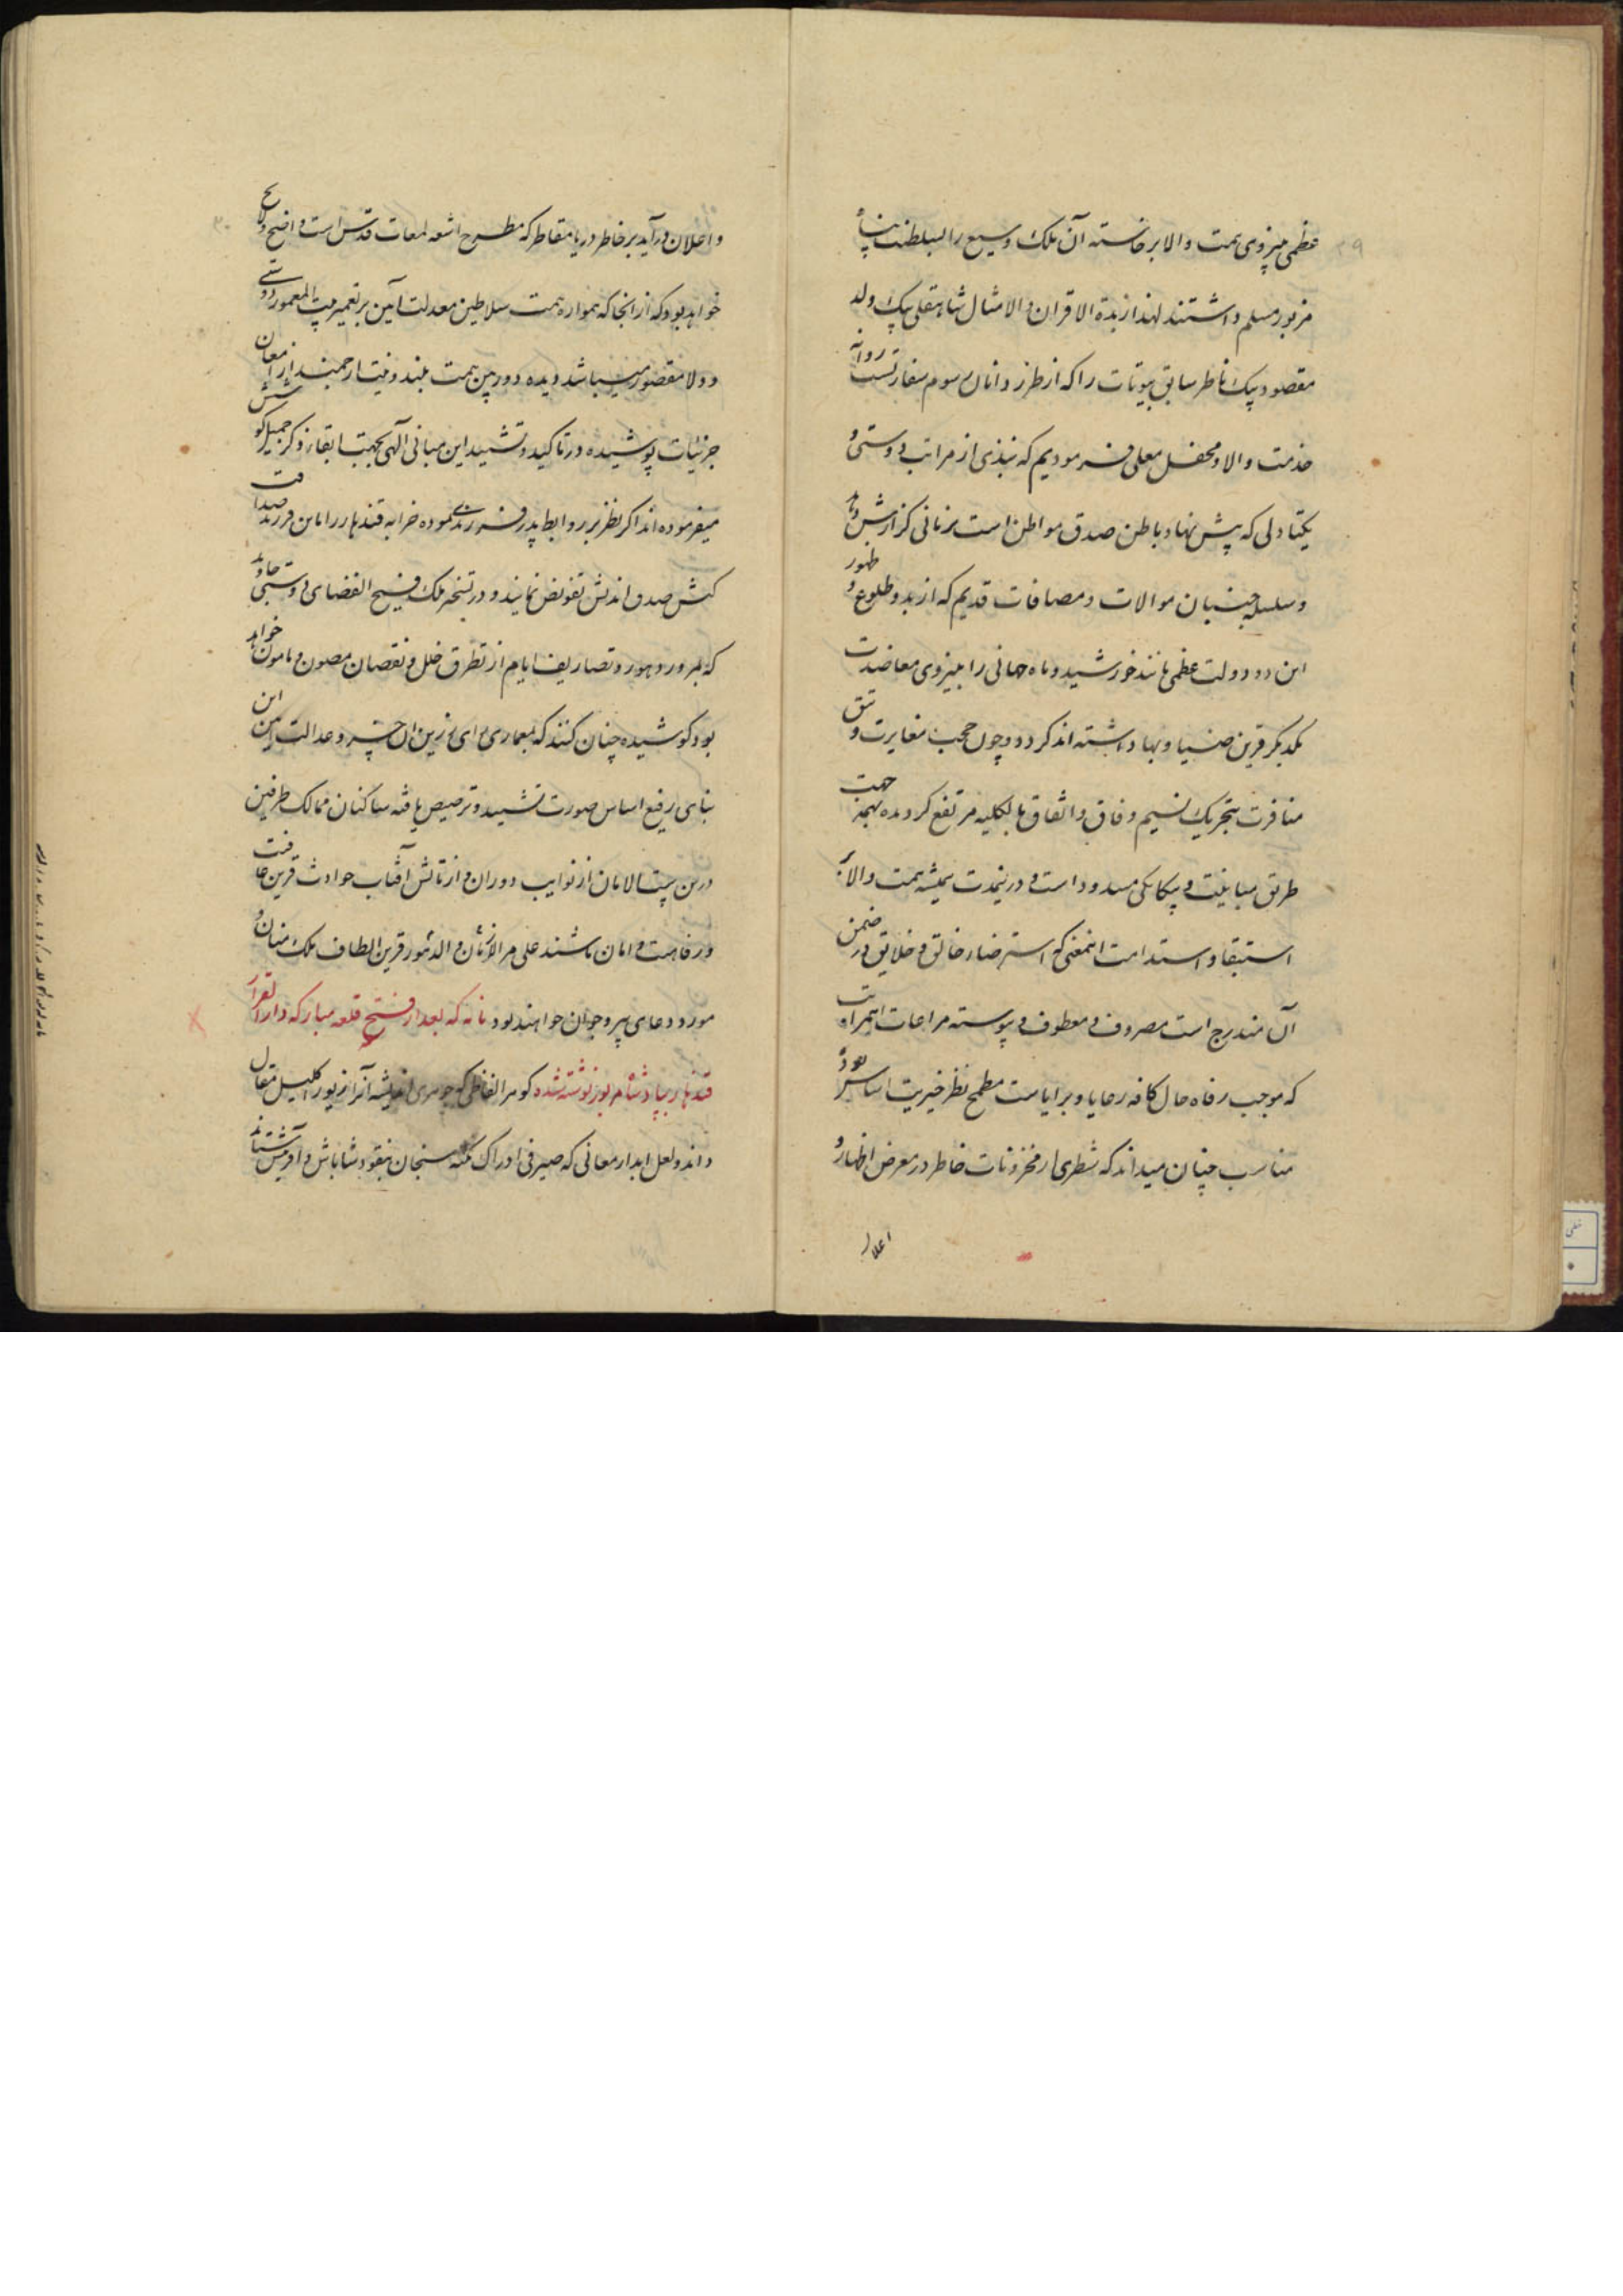 عظمی بنیروی همت والا برخاسته آن ملک وسیع را بسلطنت پناه
مزبور مسلم داشتند لهذا زبدة الاقران و الامثال شاهقلی بیک ولد
مقصود بیک ناظر سابق بیوتات را که از طرز دانان رسوم سفارتست روانه
خدمت والا و محفل معلی فرمودیم که نبذی از مراتب دوستی و
یکتادلی که پیش نهاد باطن صدق مواطن است بزبانی گزارش دهد
و سلسله جنبان موالات و مصافات قدیم که از بدو طلوع و ظهور
این دو دولت عظمی مانند خورشید و ماه جهانی را بنیروی معاضدت
یکدیگر قرین ضیا و بها داشته اند گردد و چون حجب مغایرت و تتق
منافرت بتحریک نسیم وفاق و اتفاق بالکلیه مرتفع گردیده بهمه جهت
طریق مباینت و بیگانگی مسدود است و درینمدت همیشه همت والا به
استبقا و استدامت اینمعنی که استرضاء خالق و خلایق در ضمن
آن مندرج است مصروف و معطوف و پیوسته مراعات این مراتب
که موجب رفاه حال کافه رعایا و برایاست مطمح نظر خیریت اساس بود
مناسب چنان میداند که شطری از مخزونات خاطر در معرض اظهار و
اعلان
و اعلان درآید بر خاطر دریا مقاطر که مطرح اشعه لمعات قدس است واضح و لایح
خواهد بود که از انجا که همواره همت سلاطین معدلت آیین بر تعمیر بیت المعمور دوستی
و ولا مقصور میباشد و دیده دوربین همت بلند و نیت ارجمند از امعان
جزئیات پوشیده در تاکید و تشیید این مبانی الهی بجهت ابقاء ذکر جمیل کوشش
میفرموده اند اگر نظر بر روابط پدر فرزندی نموده خرابه قندهار را باین فرزند صداقت
کیش صدق اندیش تفویض نمایند و در تسخیر ملک فسیح الفضای دوستی جاوید
که بمرور دهور و تصاریف ایام از تطرق خلل و نقصان مصون و مامون خواهد
بود کوشیده چنان کنند که بمعماری رای رزین آن خسرو عدالت آیین این
بنای رفیع اساس صورت تشیید و ترصیص یافته ساکنان ممالک طرفین
درین بیت الامان از نوایب دوران و از تابش آفتاب حوادث قرین عافیت
و رفاهیت و امان باشند علی مر الازمان و الدهور قرین الطاف ملک منان و
مورد دعای پیر و جوان خواهند بود نامه که بعد از فتح قلعه مبارکه دارالقرار
قندهار بپادشاه مزبور نوشته شده گوهر الفاظی که جوهری اندیشه آنرا زیور اکلیل مقال
داند و لعل آبدار معانی که صیرفی ادراک نکته سنجان بنقود شاباش و آفرینش ستاند